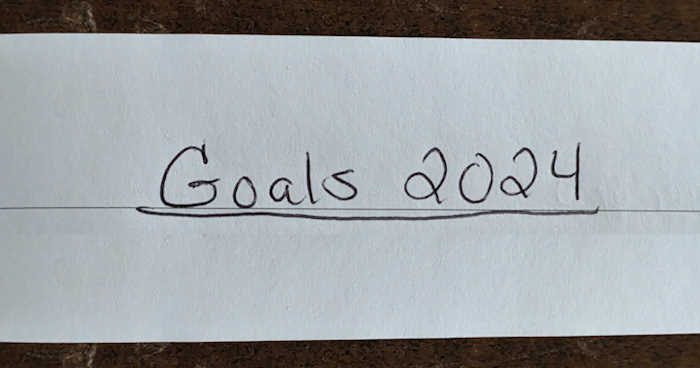 Goals 2024